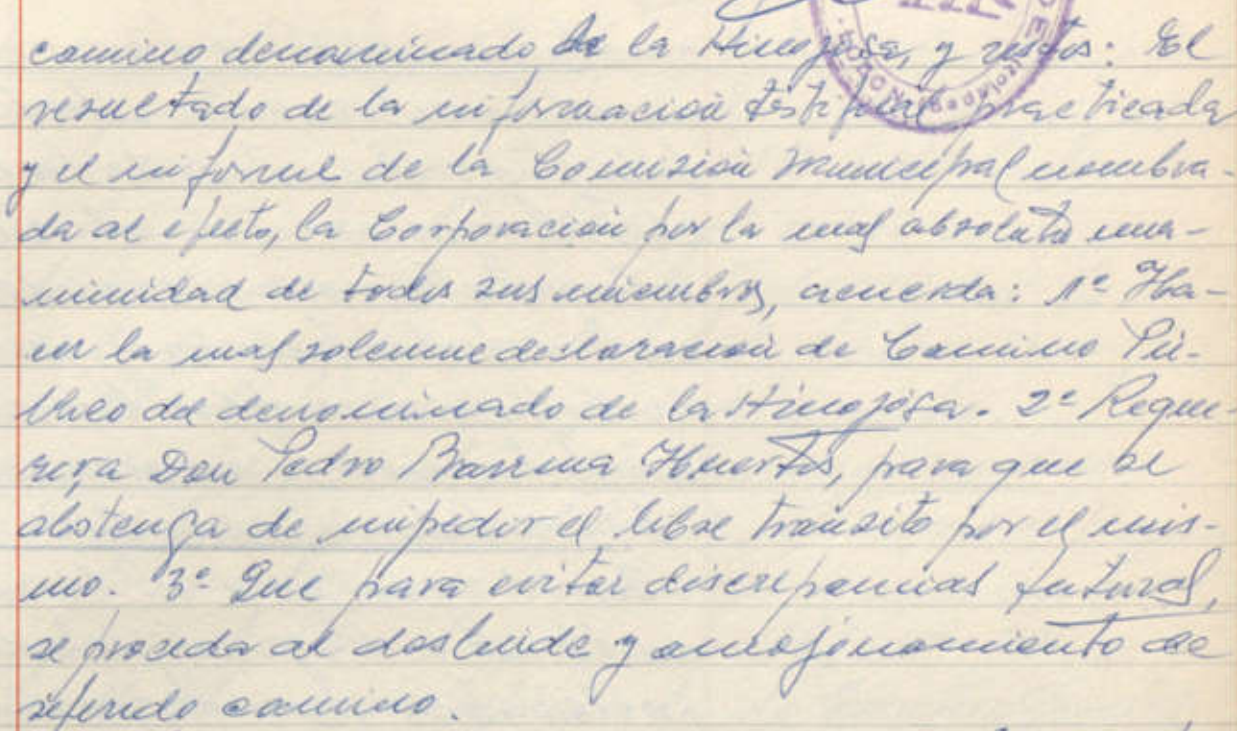 camino denominado de la Hinojosa, y vistos: El
resultado de la información testifical practicada
y el informe de la Comisión Municipal nombra-
da al efecto, la Corporación por la mas absoluta una-
nimidad de todos sus miembros, acuerda: 1º Ha-
cer la mas solemne declaración de Camino Pú-
blico del denominado de la Hinojosa. 2º Reque-
rir a Don Pedro Barrena Huertas, para que se
abstenga de impedir el libre transito por el mis-
mo. 3º Que para evitar discrepancias futuras,
se proceda al deslinde y amojonamiento del
referido camino.